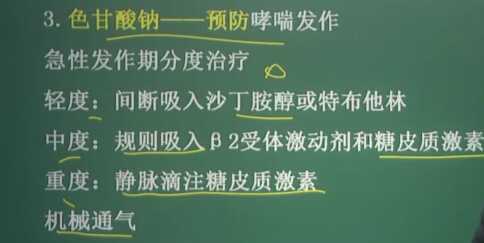 3. 色甘酸钠——预防哮喘发作
急性发作期分度治疗
轻度：间断吸入沙丁胺醇或特布他林
中度：规则吸入β2受体激动剂和糖皮质激素
重度：静脉滴注糖皮质激素
机械通气